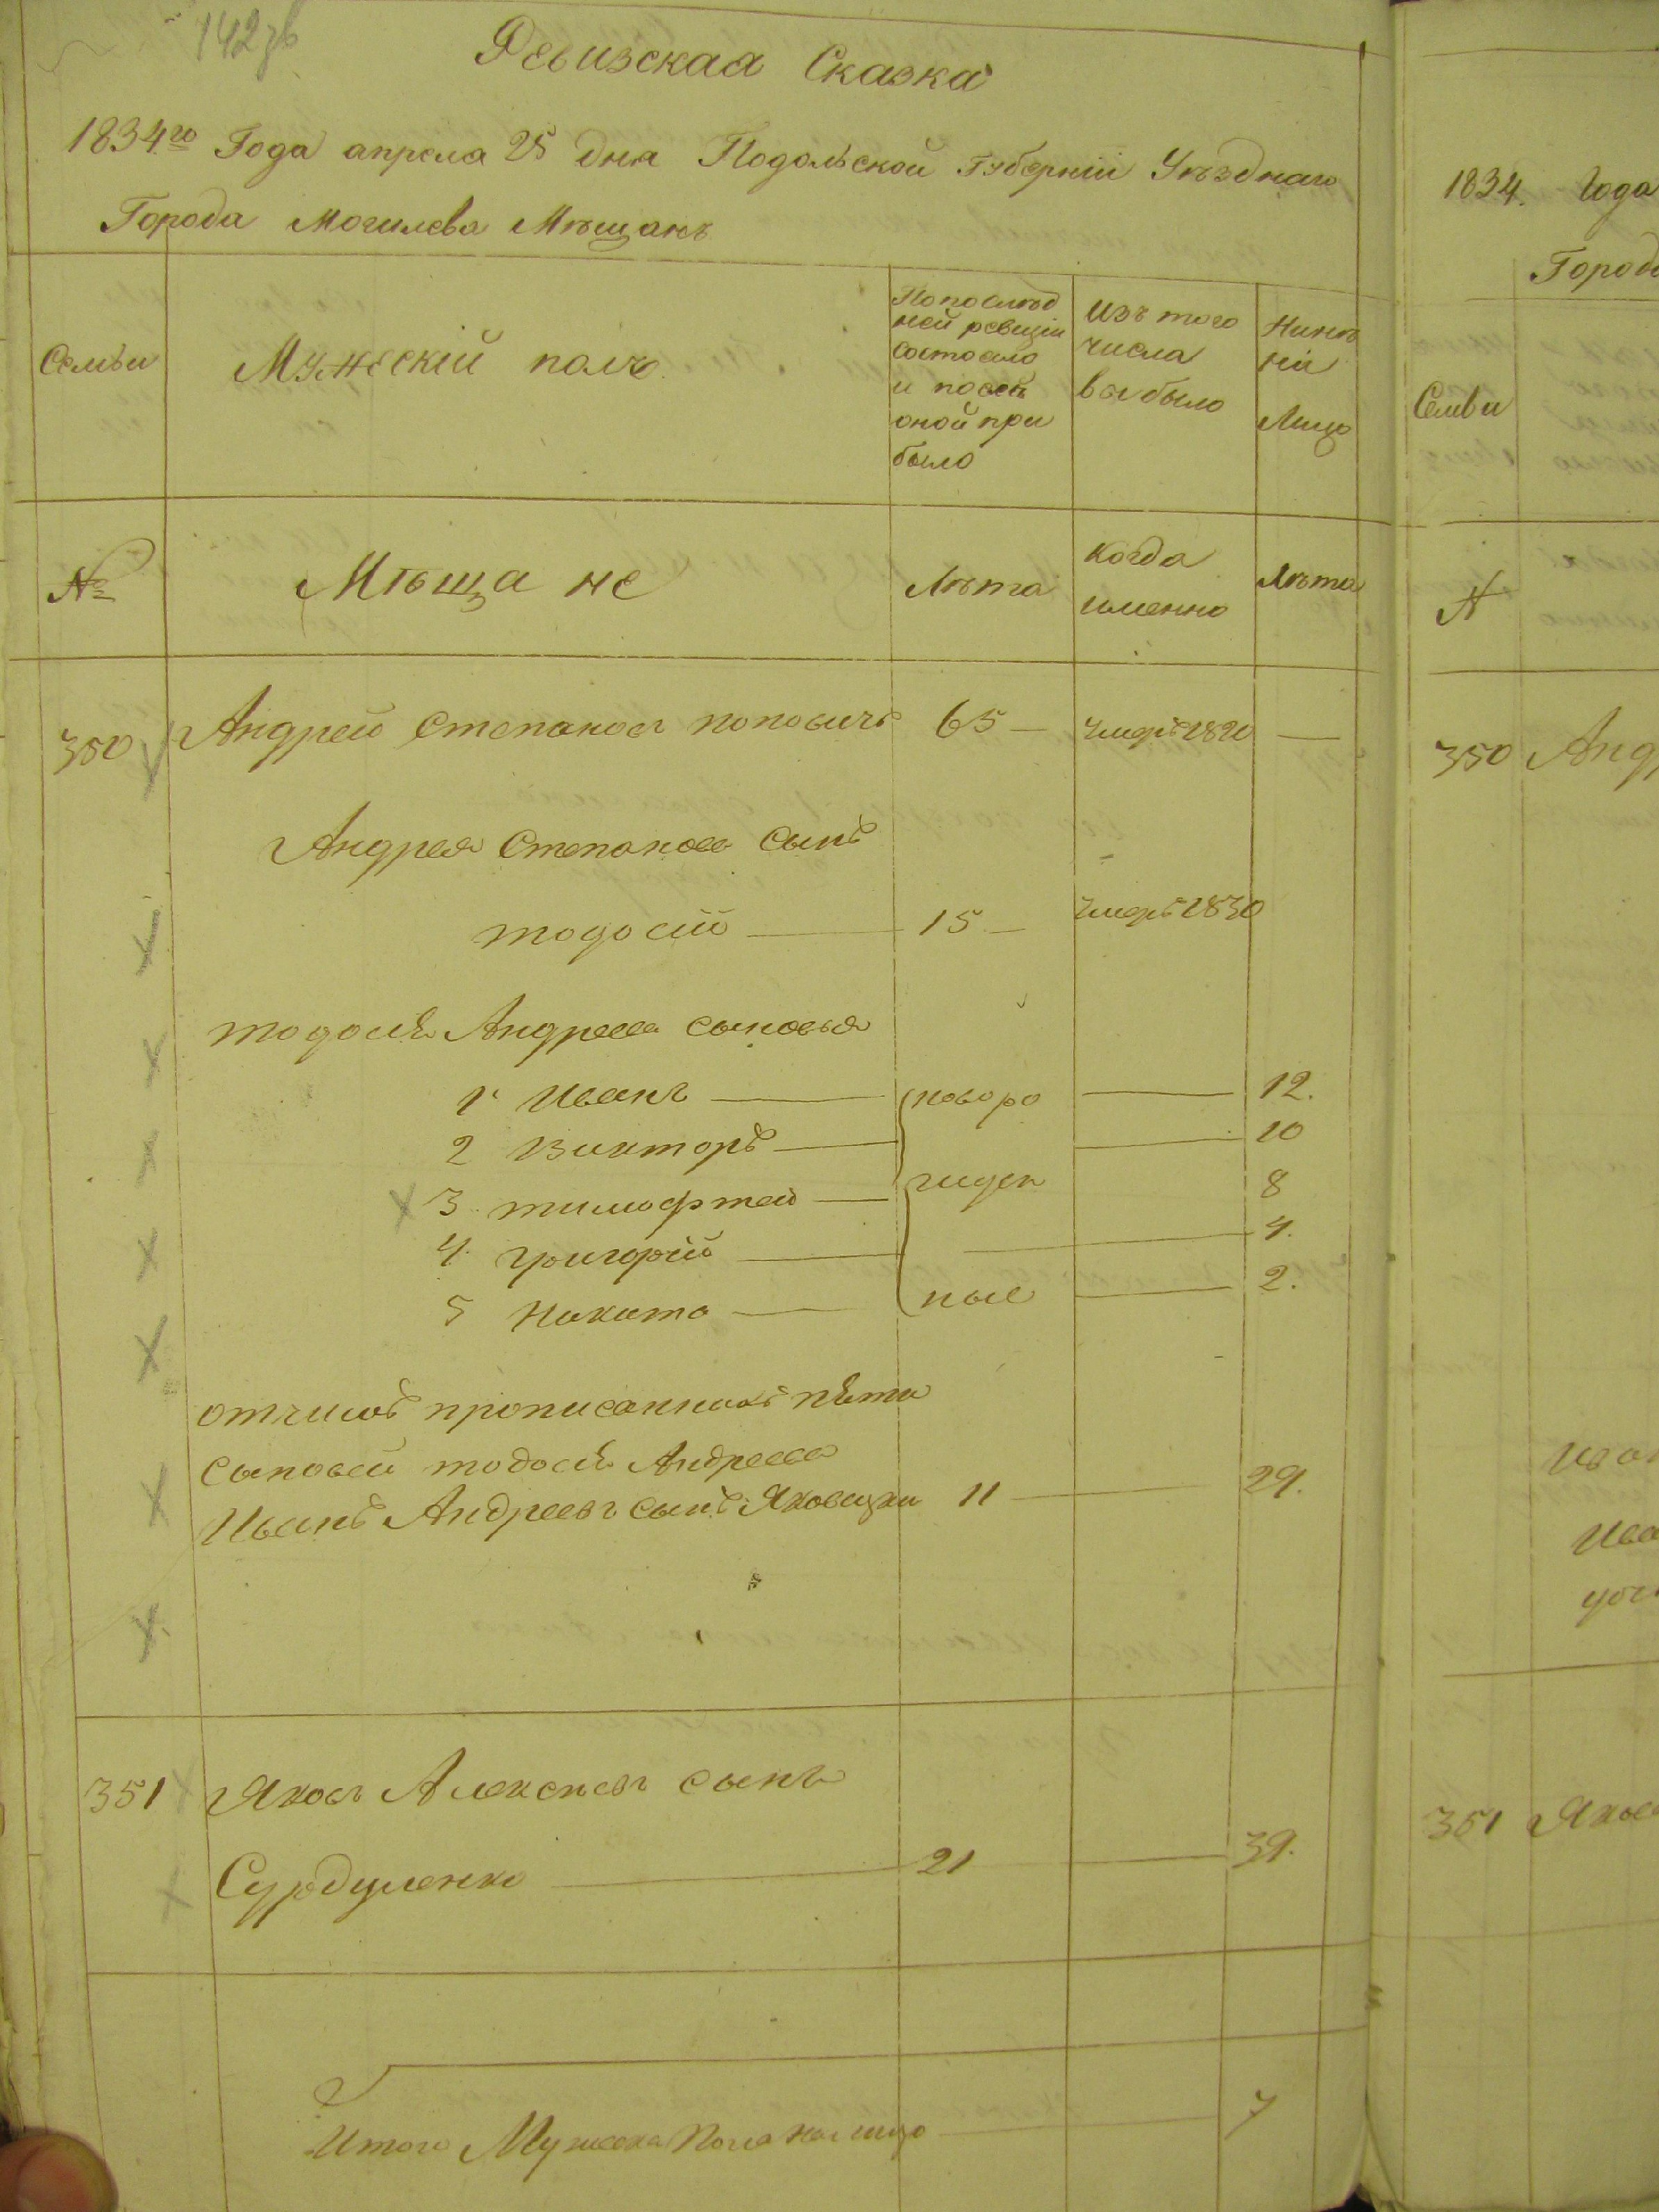 142
Ревизская Сказка
1834го Года апреля 25 дня Подольской Губерніи Уѣзднаго
Города Могилева Мѣщанъ
Семьи
Мужескій полъ
По послѣд
ней ревизіи
состояло
и послѣ
оной при
было
Изъ того
числа
выбыло
Нынѣ
Лицо
№
Мѣщане
Лѣта
когда
именно
Лѣта
350 Андрей Степановъ поповичъ 65 — умеръ 1820 —
Андрея Степанова сынъ
тодосій — 15 — умеръ 1830
тодосія Андреева сыновья
1 Иванъ — новоро — 12.
2 Викторъ — — 10
3 тимофтей — 8
4. григорій — — 4.
5 Никита — ные — 2.
прописанныхъ пяти
сыновей тодосія Андреева
Иванъ Андреевъ сынъ 11 — 29.
351 Яковъ Алексѣевъ сынъ
Сурдуленко — 21 — 39.
Итого Мужеска Пола на лицо — 7
1834. Года
Город
Семьи
№
350 Анд
Ива
351 Яков